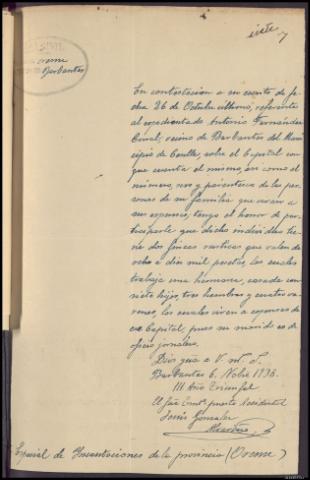 siete 7
Orense
Barbantes
En contestación a su escrito de fe
cha 26 de Octubre ultimo, referente
al expedientado Antonio Fernández
Canal, vecino de Barbantes del Muni
cipio de Cenlle, sobre el Capital con
que cuenta el mismo, asi como el
número, sexo y parentesco de las per
sonas de su familia que viven a
sus expensas, tengo el honor de par
ticiparle que dicho individuo tie
ne dos fincas rusticas que valen de
ocho a diez mil pesetas, las cuales
trabaja una hermana, casada con
siete hijos, tres hembras y cuatro va
rones, los cuales viven a expensas de
ese Capital, pues su marido es de
oficio jornalero.
Dios gue a V. m. S.
Barbantes 6. Nobre 1938.
III Año Triunfal
El Jefe Comte puesto Accidental
Jesús Gonzalez
Especial de Incautaciones de la provincia (Orense)